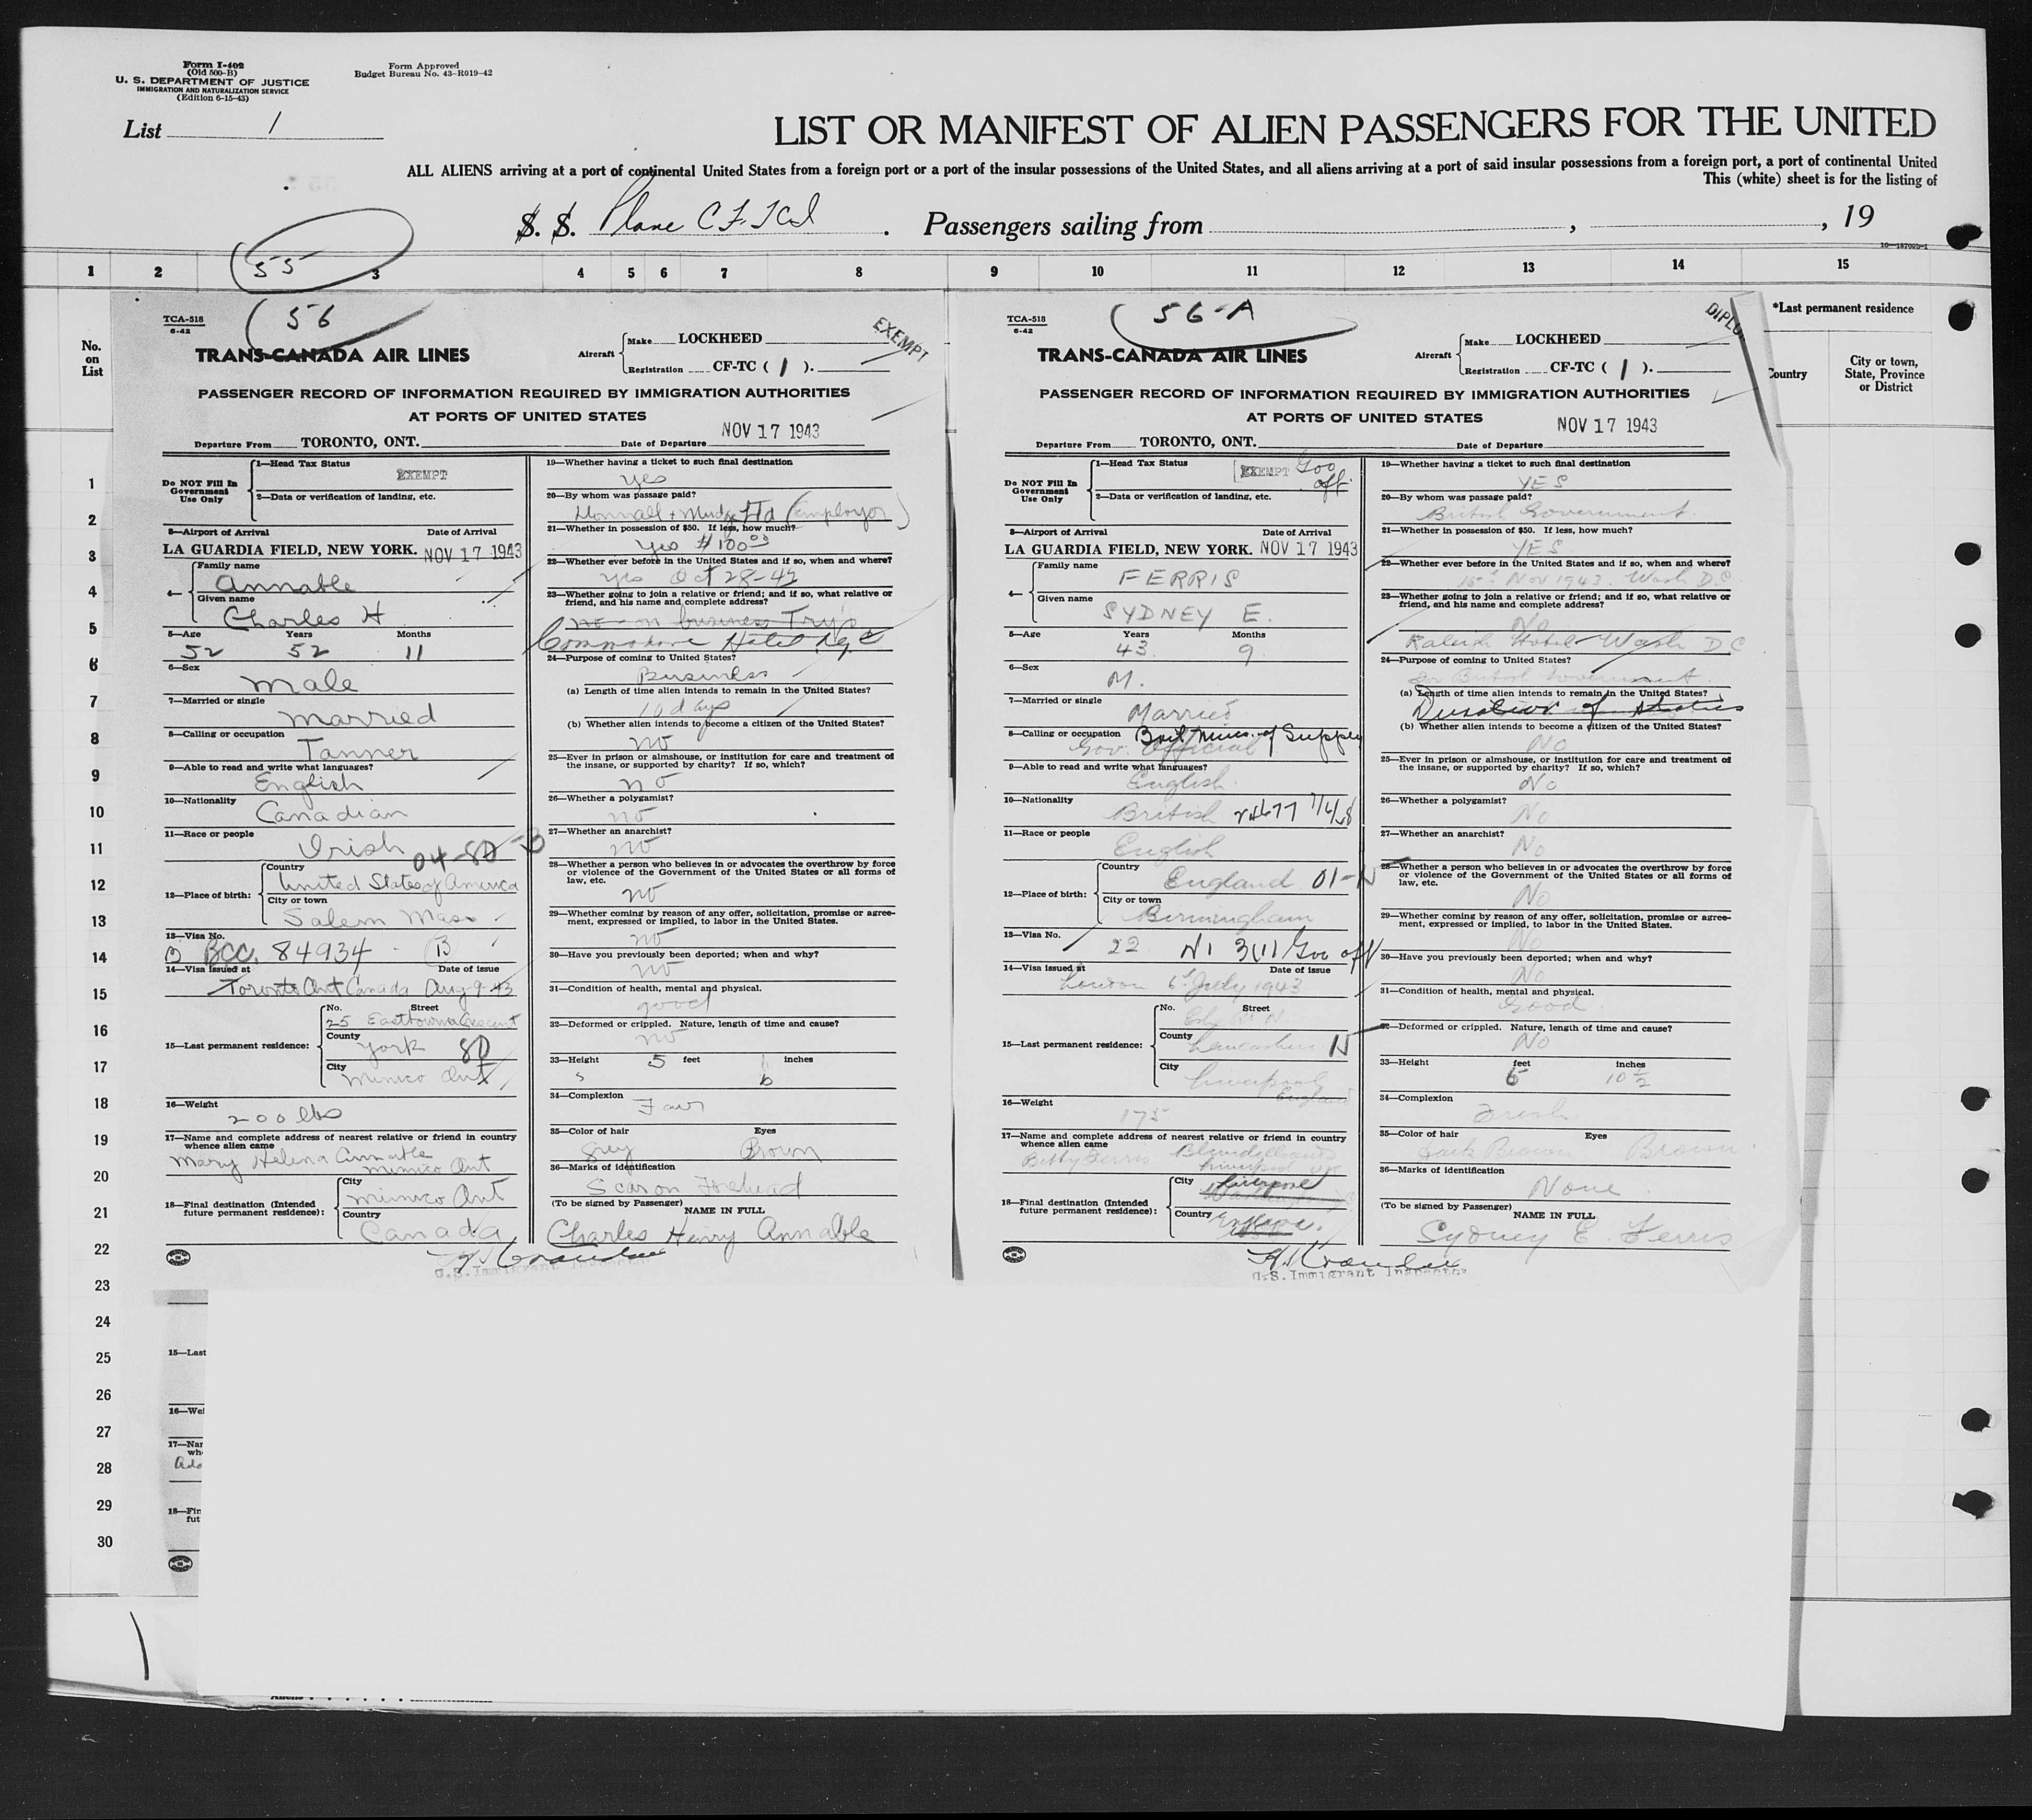 Form I-402
(Old 500-B)
U. S. DEPARTMENT OF JUSTICE
IMMIGRATION AND NATURALIZATION SERVICE
(Edition 6-15-43)
Form Approved
Budget Bureau No. 43-R019-42
List 1
LIST OR MANIFEST OF ALIEN PASSENGERS FOR THE UNITED
ALL ALIENS arriving at a port of continental United States from a foreign port or a port of the insular possessions of the United States, and all aliens arriving at a port of said insular possessions from a foreign port, a port of continental United
This (white) sheet is for the listing of
S. S. Plane CF TCI. Passengers sailing from , , 19
55
1 2 3 4 5 6 7 8 9 10 11 12 13 14 15
No.
on
List
*Last permanent residence
Country
City or town,
State, Province
or District
1
2
3
4
5
6
7
8
9
10
11
12
13
14
15
16
17
18
19
20
21
22
23
24
25
26
27
28
29
30
TCA-518
6-42
56
EXEMPT
TRANS-CANADA AIR LINES
Aircraft
Make LOCKHEED
Registration CF-TC ( 1 ).
PASSENGER RECORD OF INFORMATION REQUIRED BY IMMIGRATION AUTHORITIES
AT PORTS OF UNITED STATES
Departure From TORONTO, ONT. Date of Departure NOV 17 1943
Do NOT Fill In
Government
Use Only
1—Head Tax Status EXEMPT
2—Data or verification of landing, etc.
3—Airport of Arrival Date of Arrival
LA GUARDIA FIELD, NEW YORK. NOV 17 1943
4—
Family name
Annable
Given name
Charles H
5—Age Years Months
52 52 11
6—Sex
Male
7—Married or single
Married
8—Calling or occupation
Tanner
9—Able to read and write what languages?
English
10—Nationality
Canadian
11—Race or people
Irish 04-80-B
12—Place of birth:
Country
United States of America
City or town
Salem Mass
13—Visa No.
BCC. 84934 B
14—Visa issued at Date of issue
Toronto Ont Canada Aug 9-43
15—Last permanent residence:
No. Street
25 Easttown Crescent
County
York 80
City
Mimico Ont
16—Weight
200 lbs
17—Name and complete address of nearest relative or friend in country
whence alien came
Mary Helena Annable
Mimico Ont
18—Final destination (Intended
future permanent residence):
City
Mimico Ont
Country
Canada
19—Whether having a ticket to such final destination
Yes
20—By whom was passage paid?
Ltd (employer)
21—Whether in possession of $50. If less, how much?
Yes $100.00
22—Whether ever before in the United States and if so, when and where?
Yes Oct 28-42
23—Whether going to join a relative or friend; and if so, what relative or
friend, and his name and complete address?
no - on business Trip
Commodore Hotel N.Y.C
24—Purpose of coming to United States?
Business
(a) Length of time alien intends to remain in the United States?
10 days
(b) Whether alien intends to become a citizen of the United States?
no
25—Ever in prison or almshouse, or institution for care and treatment of
the insane, or supported by charity? If so, which?
no
26—Whether a polygamist?
no
27—Whether an anarchist?
no
28—Whether a person who believes in or advocates the overthrow by force
or violence of the Government of the United States or all forms of
law, etc.
no
29—Whether coming by reason of any offer, solicitation, promise or agree-
ment, expressed or implied, to labor in the United States.
no
30—Have you previously been deported; when and why?
no
31—Condition of health, mental and physical.
good
32—Deformed or crippled. Nature, length of time and cause?
no
33—Height 5 feet 6 inches
34—Complexion
Fair
35—Color of hair Eyes
Grey Brown
36—Marks of identification
Scar on Forehead
(To be signed by Passenger)
NAME IN FULL
Charles Henry Annable
U.S. Immigrant Inspector
TCA-518
6-42
56-A
DIPLO
TRANS-CANADA AIR LINES
Aircraft
Make LOCKHEED
Registration CF-TC ( 1 ).
PASSENGER RECORD OF INFORMATION REQUIRED BY IMMIGRATION AUTHORITIES
AT PORTS OF UNITED STATES
Departure From TORONTO, ONT. Date of Departure NOV 17 1943
Do NOT Fill In
Government
Use Only
1—Head Tax Status EXEMPT Gov off.
2—Data or verification of landing, etc.
3—Airport of Arrival Date of Arrival
LA GUARDIA FIELD, NEW YORK. NOV 17 1943
4—
Family name
FERRIS
Given name
SYDNEY E.
5—Age Years Months
43 9
6—Sex
M.
7—Married or single
Married
8—Calling or occupation Brit. Minis. of Supply
Gov. Official
9—Able to read and write what languages?
English
10—Nationality
British
11—Race or people
English
12—Place of birth:
Country
England 01-N
City or town
Birmingham
13—Visa No.
22 3(1) Gov off
14—Visa issued at Date of issue
London 6 July 1943
15—Last permanent residence:
No. Street
County
Lancashire N
City
Liverpool
England
16—Weight
175
17—Name and complete address of nearest relative or friend in country
whence alien came
Betty Ferris
Liverpool
18—Final destination (Intended
future permanent residence):
City
Liverpool
Country
19—Whether having a ticket to such final destination
YES
20—By whom was passage paid?
British Government
21—Whether in possession of $50. If less, how much?
YES
22—Whether ever before in the United States and if so, when and where?
15 Nov 1943. Wash D.C
23—Whether going to join a relative or friend; and if so, what relative or
friend, and his name and complete address?
No
Raleigh Hotel Wash D C
24—Purpose of coming to United States?
for British Government.
(a) Length of time alien intends to remain in the United States?
Duration of status
(b) Whether alien intends to become a citizen of the United States?
No
25—Ever in prison or almshouse, or institution for care and treatment of
the insane, or supported by charity? If so, which?
No
26—Whether a polygamist?
No
27—Whether an anarchist?
No
28—Whether a person who believes in or advocates the overthrow by force
or violence of the Government of the United States or all forms of
law, etc.
No
29—Whether coming by reason of any offer, solicitation, promise or agree-
ment, expressed or implied, to labor in the United States.
No
30—Have you previously been deported; when and why?
No
31—Condition of health, mental and physical.
Good
32—Deformed or crippled. Nature, length of time and cause?
No
33—Height feet inches
5 10½
34—Complexion
Fresh
35—Color of hair Eyes
Dark Brown Brown
36—Marks of identification
None
(To be signed by Passenger)
NAME IN FULL
Sydney E. Ferris
U.S. Immigrant Inspector
15—Last
16—Wei
17—Nar
wh
18—Fin
fut